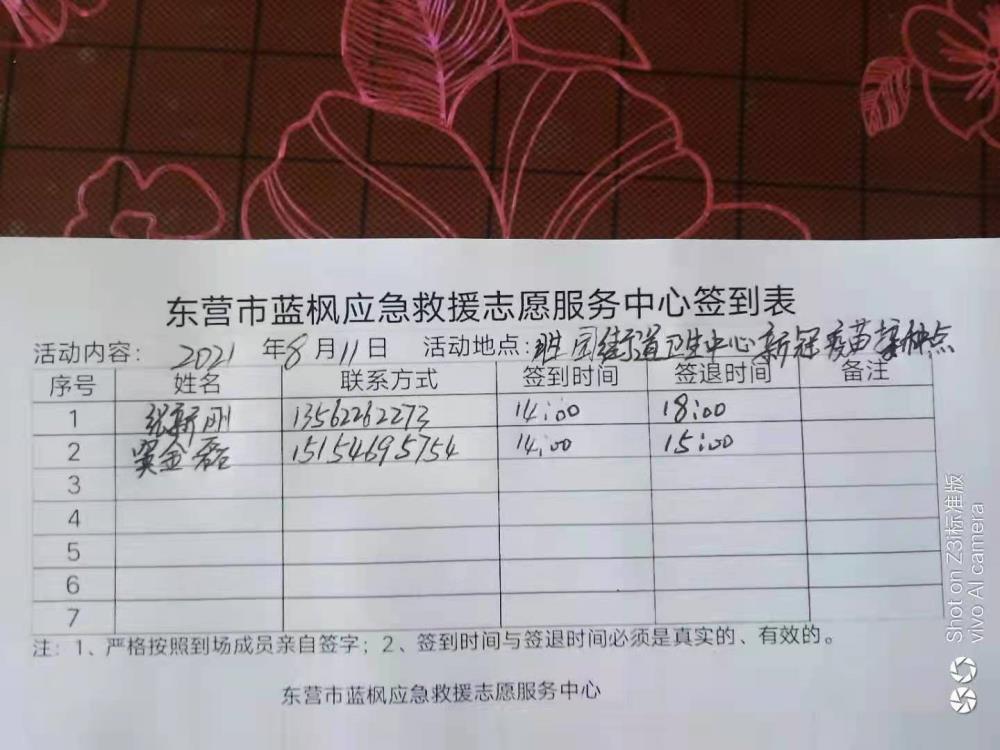 东营市蓝枫应急救援志愿服务中心签到表
活动内容: 2021 年8月11日 活动地点:胜园街道卫生中心新冠疫苗接种点
序号 姓名 联系方式 签到时间 签退时间 备注
1 张新刚 13562262273 14:00 18:00
2 窦金磊 15154695754 14:00 15:00
3
4
5
6
7
注：1、严格按照到场成员亲自签字；2、签到时间与签退时间必须是真实的、有效的。
东营市蓝枫应急救援志愿服务中心
Shot on Z3i标准版
vivo AI camera